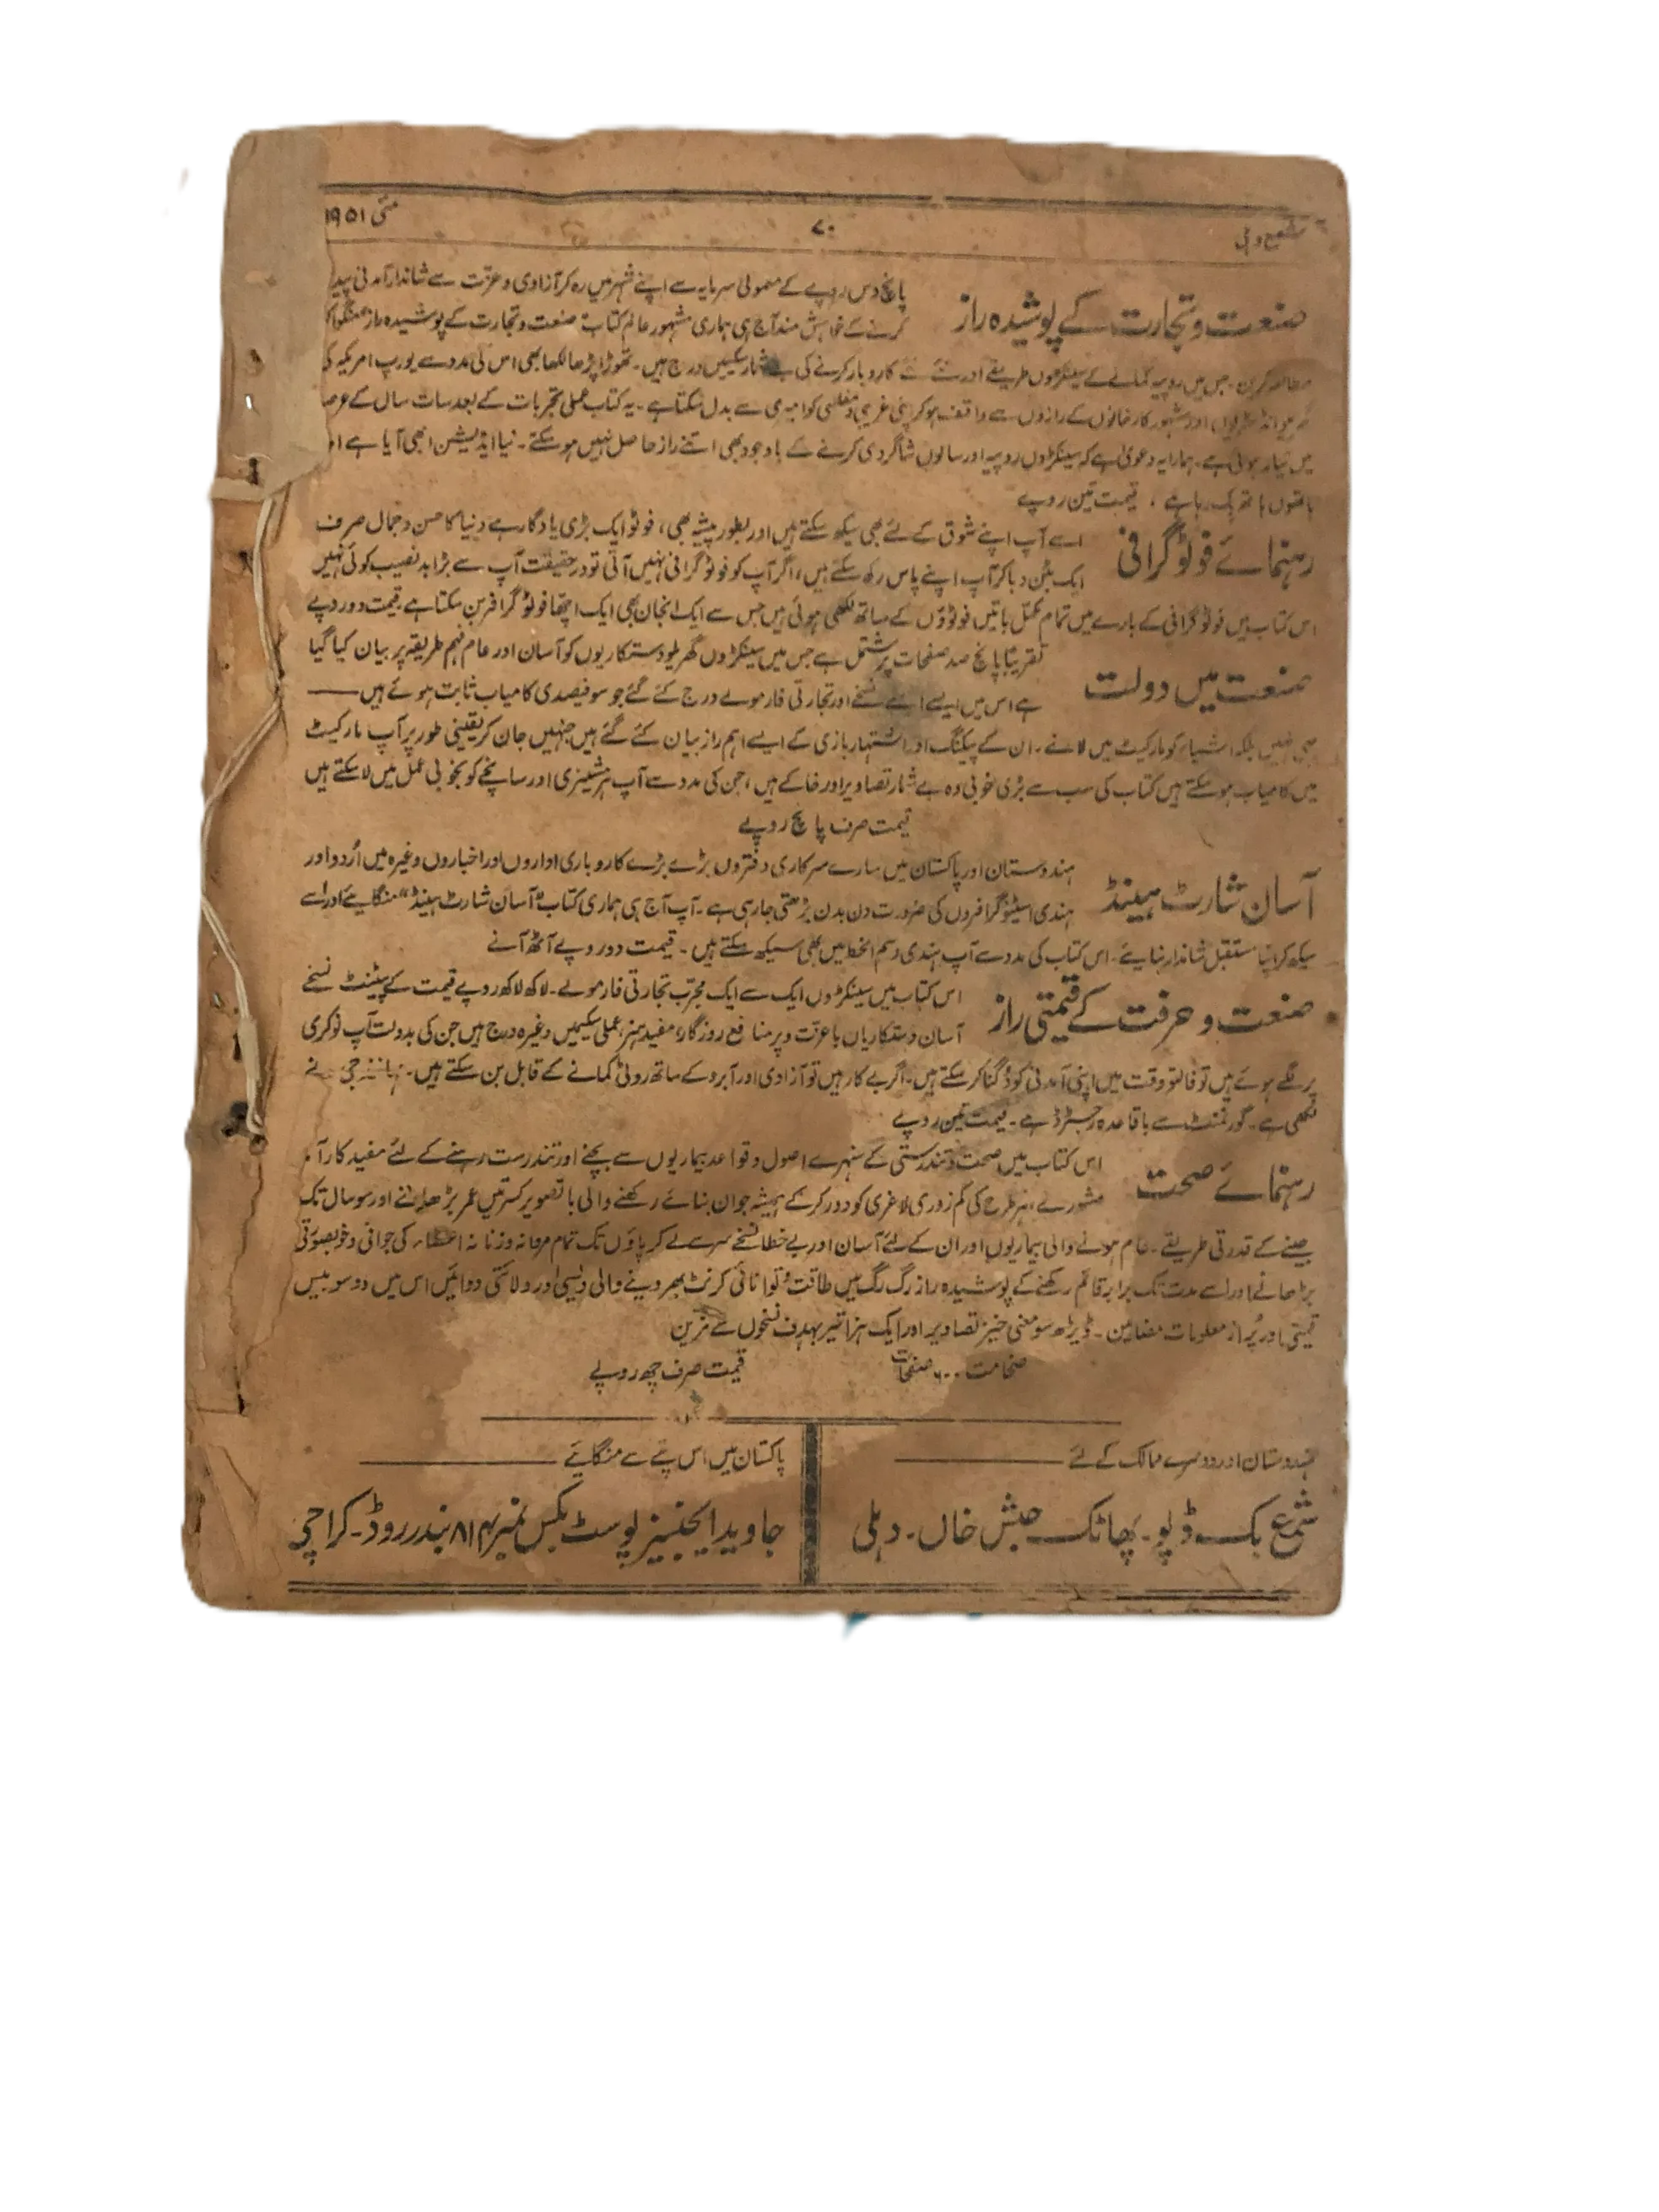 شمع دہلی
۷۰
مئی ۱۹۵۱
صنعت و تجارت کے پوشیدہ راز
پانچ دس روپے کے معمولی سرمایہ سے اپنے شہر میں رہ کر آزادی و عزت سے شاندار آمدنی پیدا
کرنے کے خواہش مند آج ہی ہماری مشہور عالم کتاب صنعت و تجارت کے پوشیدہ راز منگوا کر
مطالعہ کریں۔ جس میں روپیہ کمانے کے سینکڑوں طریقے اور نئے نئے کاروبار کرنے کی بے شمار سکیمیں درج ہیں۔ تھوڑا پڑھا لکھا بھی اس کی مدد سے یورپ امریکہ کی
گھریلو انڈسٹریوں اور مشہور کارخانوں کے رازوں سے واقف ہو کر اپنی غریبی و مفلسی کو امیری سے بدل سکتا ہے۔ یہ کتاب عملی تجربات کے بعد سات سال کے عرصہ
میں تیار ہوئی ہے۔ ہمارا یہ دعویٰ ہے کہ سینکڑوں روپیہ اور سالوں شاگردی کرنے کے باوجود بھی اتنے راز حاصل نہیں ہو سکتے۔ نیا ایڈیشن ابھی آیا ہے
ہاتھوں ہاتھ بک رہا ہے۔ قیمت تین روپے
رہنمائے فوٹو گرافی
اسے آپ اپنے شوق کے لئے بھی سیکھ سکتے ہیں اور بطور پیشہ بھی، فوٹو ایک بڑی یادگار ہے دنیا کا حسن و جمال صرف
ایک بٹن دبا کر آپ اپنے پاس رکھ سکتے ہیں، اگر آپ کو فوٹو گرافی نہیں آتی تو در حقیقت آپ سے بڑا بد نصیب کوئی نہیں
اس کتاب میں فوٹو گرافی کے بارے میں تمام مکمل باتیں فوٹوؤں کے ساتھ لکھی ہوئی ہیں جس سے ایک انجان بھی ایک اچھا فوٹو گرافر بن سکتا ہے قیمت دو روپے
صنعت میں دولت
تقریباً پانچ صد صفحات پر مشتمل ہے جس میں سینکڑوں گھریلو دستکاریوں کو آسان اور عام فہم طریقہ پر بیان کیا گیا
ہے اس میں ایسے ایسے نسخے اور تجارتی فارمولے درج کئے گئے جو سو فیصدی کامیاب ثابت ہوئے ہیں ——
یہی نہیں بلکہ اشیاء کو مارکیٹ میں لانے۔ ان کے پیکنگ اور اشتہار بازی کے ایسے اہم راز بیان کئے گئے ہیں جنہیں جان کر یقینی طور پر آپ مارکیٹ
میں کامیاب ہو سکتے ہیں کتاب کی سب سے بڑی خوبی وہ بے شمار تصاویر اور خاکے ہیں، جن کی مدد سے آپ ہر مشینری اور سانچے کو بخوبی عمل میں لا سکتے ہیں
قیمت صرف پانچ روپے
آسان شارٹ ہینڈ
ہندوستان اور پاکستان میں سارے سرکاری دفتروں بڑے بڑے کاروباری اداروں اور اخباروں وغیرہ میں اُردو اور
ہندی اسٹینوگرافروں کی ضرورت دن بدن بڑھتی جا رہی ہے۔ آپ آج ہی ہماری کتاب "آسان شارٹ ہینڈ" منگائیے اور اسے
سیکھ کر اپنا مستقبل شاندار بنایئے۔ اس کتاب کی مدد سے آپ ہندی رسم الخط میں بھی سیکھ سکتے ہیں۔ قیمت دو روپے آٹھ آنے
صنعت و حرفت کے قیمتی راز
اس کتاب میں سینکڑوں ایک سے ایک مجرّب تجارتی فارمولے۔ لاکھ لاکھ روپے قیمت کے پیٹنٹ نسخے
آسان دستکاریاں باعزت و پر منافع روزگار، مفید ہنر، عملی سکیمیں وغیرہ درج ہیں جن کی بدولت آپ نوکری
پر لگے ہوئے ہیں تو فالتو وقت میں اپنی آمدنی کو دُگنا کر سکتے ہیں۔ اگر بے کار ہیں تو آزادی اور آبرو کے ساتھ روٹی کمانے کے قابل بن سکتے ہیں۔ جی نے
لکھی ہے۔ گورنمنٹ سے باقاعدہ رجسٹرڈ ہے۔ قیمت تین روپے
رہنمائے صحت
اس کتاب میں صحت و تندرستی کے سنہرے اصول و قواعد بیماریوں سے بچنے اور تندرست رہنے کے لئے مفید کارآمد
مشورے، ہر طرح کی کمزوری لاغری کو دور کر کے ہمیشہ جوان بنائے رکھنے والی با تصویر کسرتیں عمر بڑھانے اور سو سال تک
جینے کے قدرتی طریقے۔ عام ہونے والی بیماریوں اور ان کے لئے آسان اور بے خطا نسخے سر سے لے کر پاؤں تک تمام مردانہ و زنانہ اعضاء کی جوانی و خوبصورتی
بڑھانے اور اسے مدت تک برابر قائم رکھنے کے پوشیدہ راز رگ رگ میں طاقت و توانائی کرنٹ بھر دینے والی دیسی اور ولائتی دوائیں اس میں دو سو بیس
قیمتی اور پُر از معلومات مضامین۔ ڈیڑھ سو معنی خیز تصاویر اور ایک ہزار تیر بہدف نسخوں سے مزین
ضخامت ۶۰۰ صفحات
قیمت صرف چھ روپے
ہندوستان اور دوسرے ممالک کے لئے
شمع بک ڈپو۔ پھاٹک حبش خاں۔ دہلی
پاکستان میں اس پتے سے منگایئے
جاوید ایجنسیز پوسٹ بکس نمبر ۸۱۴ بندر روڈ۔ کراچی